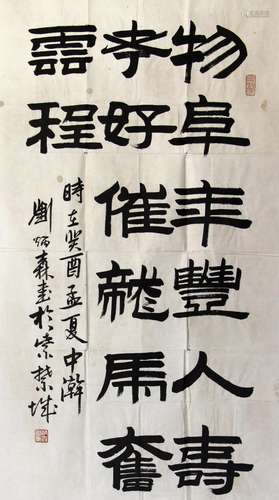 物阜年豐人壽
考好催龍馬奮
雲程
時在癸酉孟夏中澣
劉炳森書於紫禁城